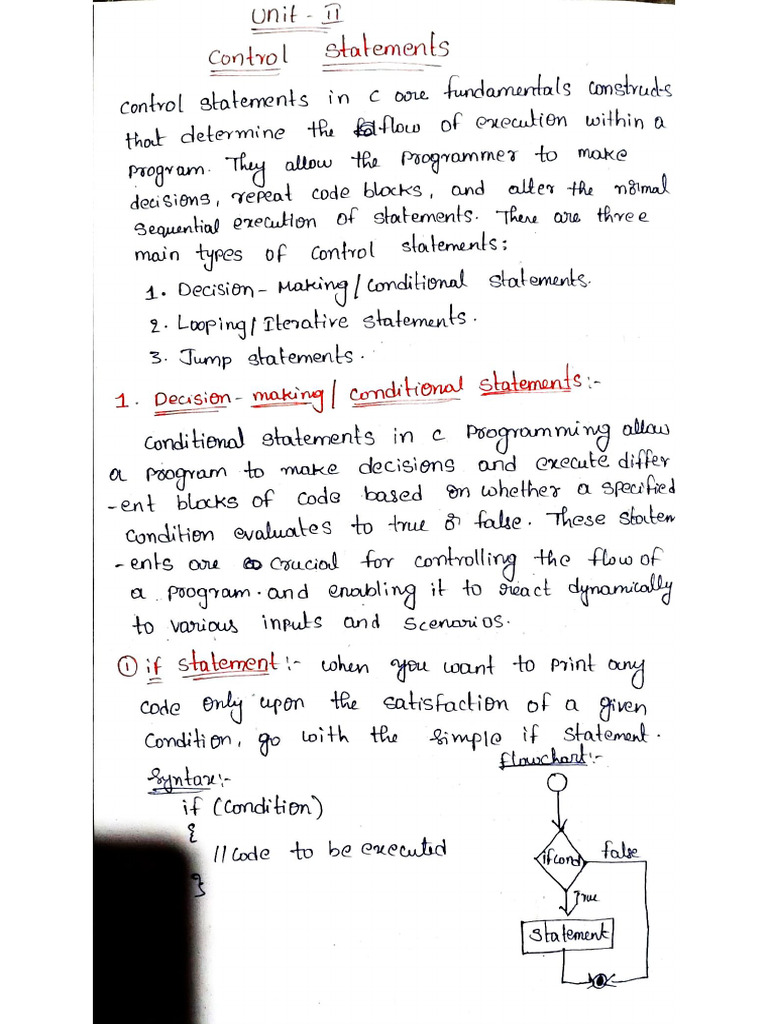 Unit - II
Control Statements
Control statements in C are fundamentals constructs
that determine the flow of execution within a
program. They allow the programmer to make
decisions, repeat code blocks, and alter the normal
sequential execution of statements. There are three
main types of control statements:
1. Decision - Making / Conditional statements.
2. Looping / Iterative statements.
3. Jump statements.
1. Decision - making / Conditional statements:-
Conditional statements in C programming allow
a program to make decisions and execute differ
-ent blocks of code based on whether a specified
condition evaluates to true or false. These statem
-ents are crucial for controlling the flow of
a program. and enabling it to react dynamically
to various inputs and scenarios.
① if statement:- when you want to print any
code only upon the satisfaction of a given
condition, go with the simple if statement.
Syntax:-
if (condition)
{
// code to be executed
}
flowchart:-
if cond
false
True
Statement